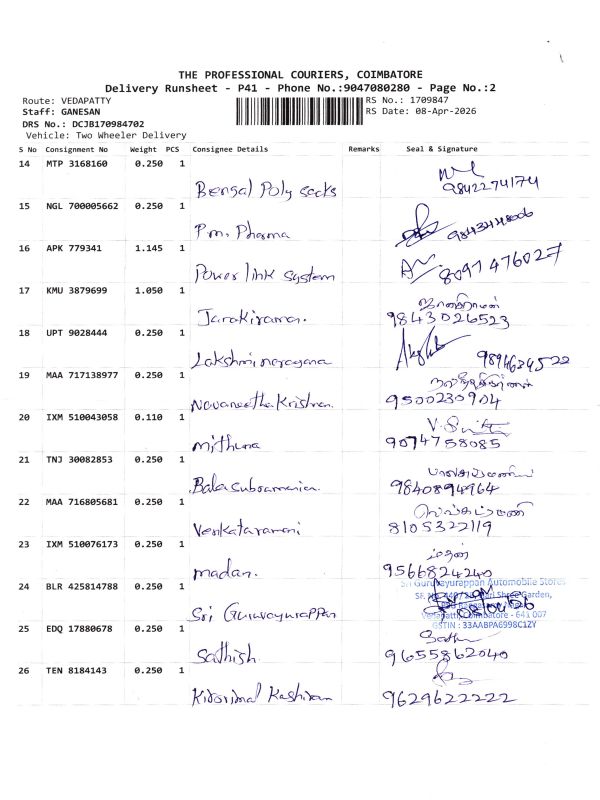 THE PROFESSIONAL COURIERS, COIMBATORE
Delivery Runsheet - P41 - Phone No.:9047080280 - Page No.:2
Route: VEDAPATTY
RS No.: 1709847
Staff: GANESAN
RS Date: 08-Apr-2026
DRS No.: DCJB170984702
Vehicle: Two Wheeler Delivery
S No Consignment No Weight PCS Consignee Details Remarks Seal & Signature
14 MTP 3168160 0.250 1
Bengal Poly sacks 9842274174
15 NGL 700005662 0.250 1
P.m. Pharma
16 APK 779341 1.145 1
Power link system 8097476027
17 KMU 3879699 1.050 1
Janakiraman. 9843026523
18 UPT 9028444 0.250 1
Lakshminarayana 9894634522
19 MAA 717138977 0.250 1
Navaneetha Krishnan 9500230904
20 IXM 510043058 0.110 1
Mithuna 9074758085
21 TNJ 30082853 0.250 1
Balasubramanian 9840894964
22 MAA 716805681 0.250 1
Venkataramani 8105322119
23 IXM 510076173 0.250 1
மதன்
madan. 9566824240
24 BLR 425814788 0.250 1
Sri Guruvayurappan Automobile Stores
Garden,
Sri Guruvayurappan
Coimbatore - 641 007
GSTIN : 33AABPA6998C1ZY
25 EDQ 17880678 0.250 1
Sathish 9655862040
26 TEN 8184143 0.250 1
9629622222